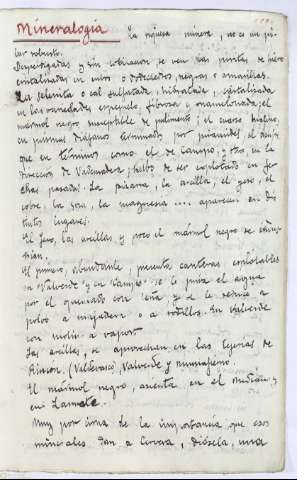 Mineralogía La riqueza minera, no es un pi-
lar robusto.
Desperdigadas y sin cotización se ven las piritas de hierro
cristalizadas en cubos o dodecaedros, negras o amarillas.
La selenita o cal sulfatada, hidratada, cristalizada
en las variedades espejuelo, fibrosa y mamelonada; el
mármol negro susceptible de pulimento; el cuarzo hialino,
en prismas diáfanos terminados por pirámides; el
que en términos como el de Campo, y otro, en la
dirección de Valdemadera, hubo de ser explotado en fe-
chas pasadas. La pizarra, la arcilla, el yeso, el
cobre, la sosa, la magnesia .... aparecen en dis-
tintos lugares.
El yeso, las arcillas, y poco el mármol negro se
El primero, abundante, presenta canteras explotables
en "Valverde" y en "Campo". se le priva del agua
por el quemado con leña y se le reduce a
polvo a majadera o a rodillo. En Valverde
con molino a vapor.
Las arcillas, se aprovechan en las tejerías de
Rincón, (Valdevasco), Valverde y
El mármol negro, asienta, en el
y en
Muy por cima de la importancia que esos
minerales dan a Cervera, dióscela, una